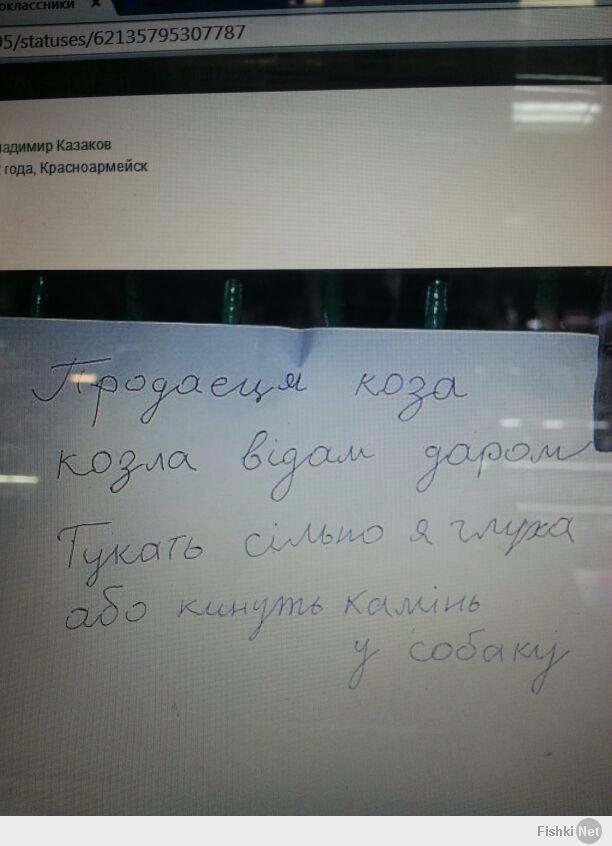 оклассники ×
95/statuses/62135795307787
адимир Казаков
года, Красноармейск
Продаєця коза
козла відам даром
Тукать сільно я глуха
або кинуть камінь
у собаку
Fishki Net